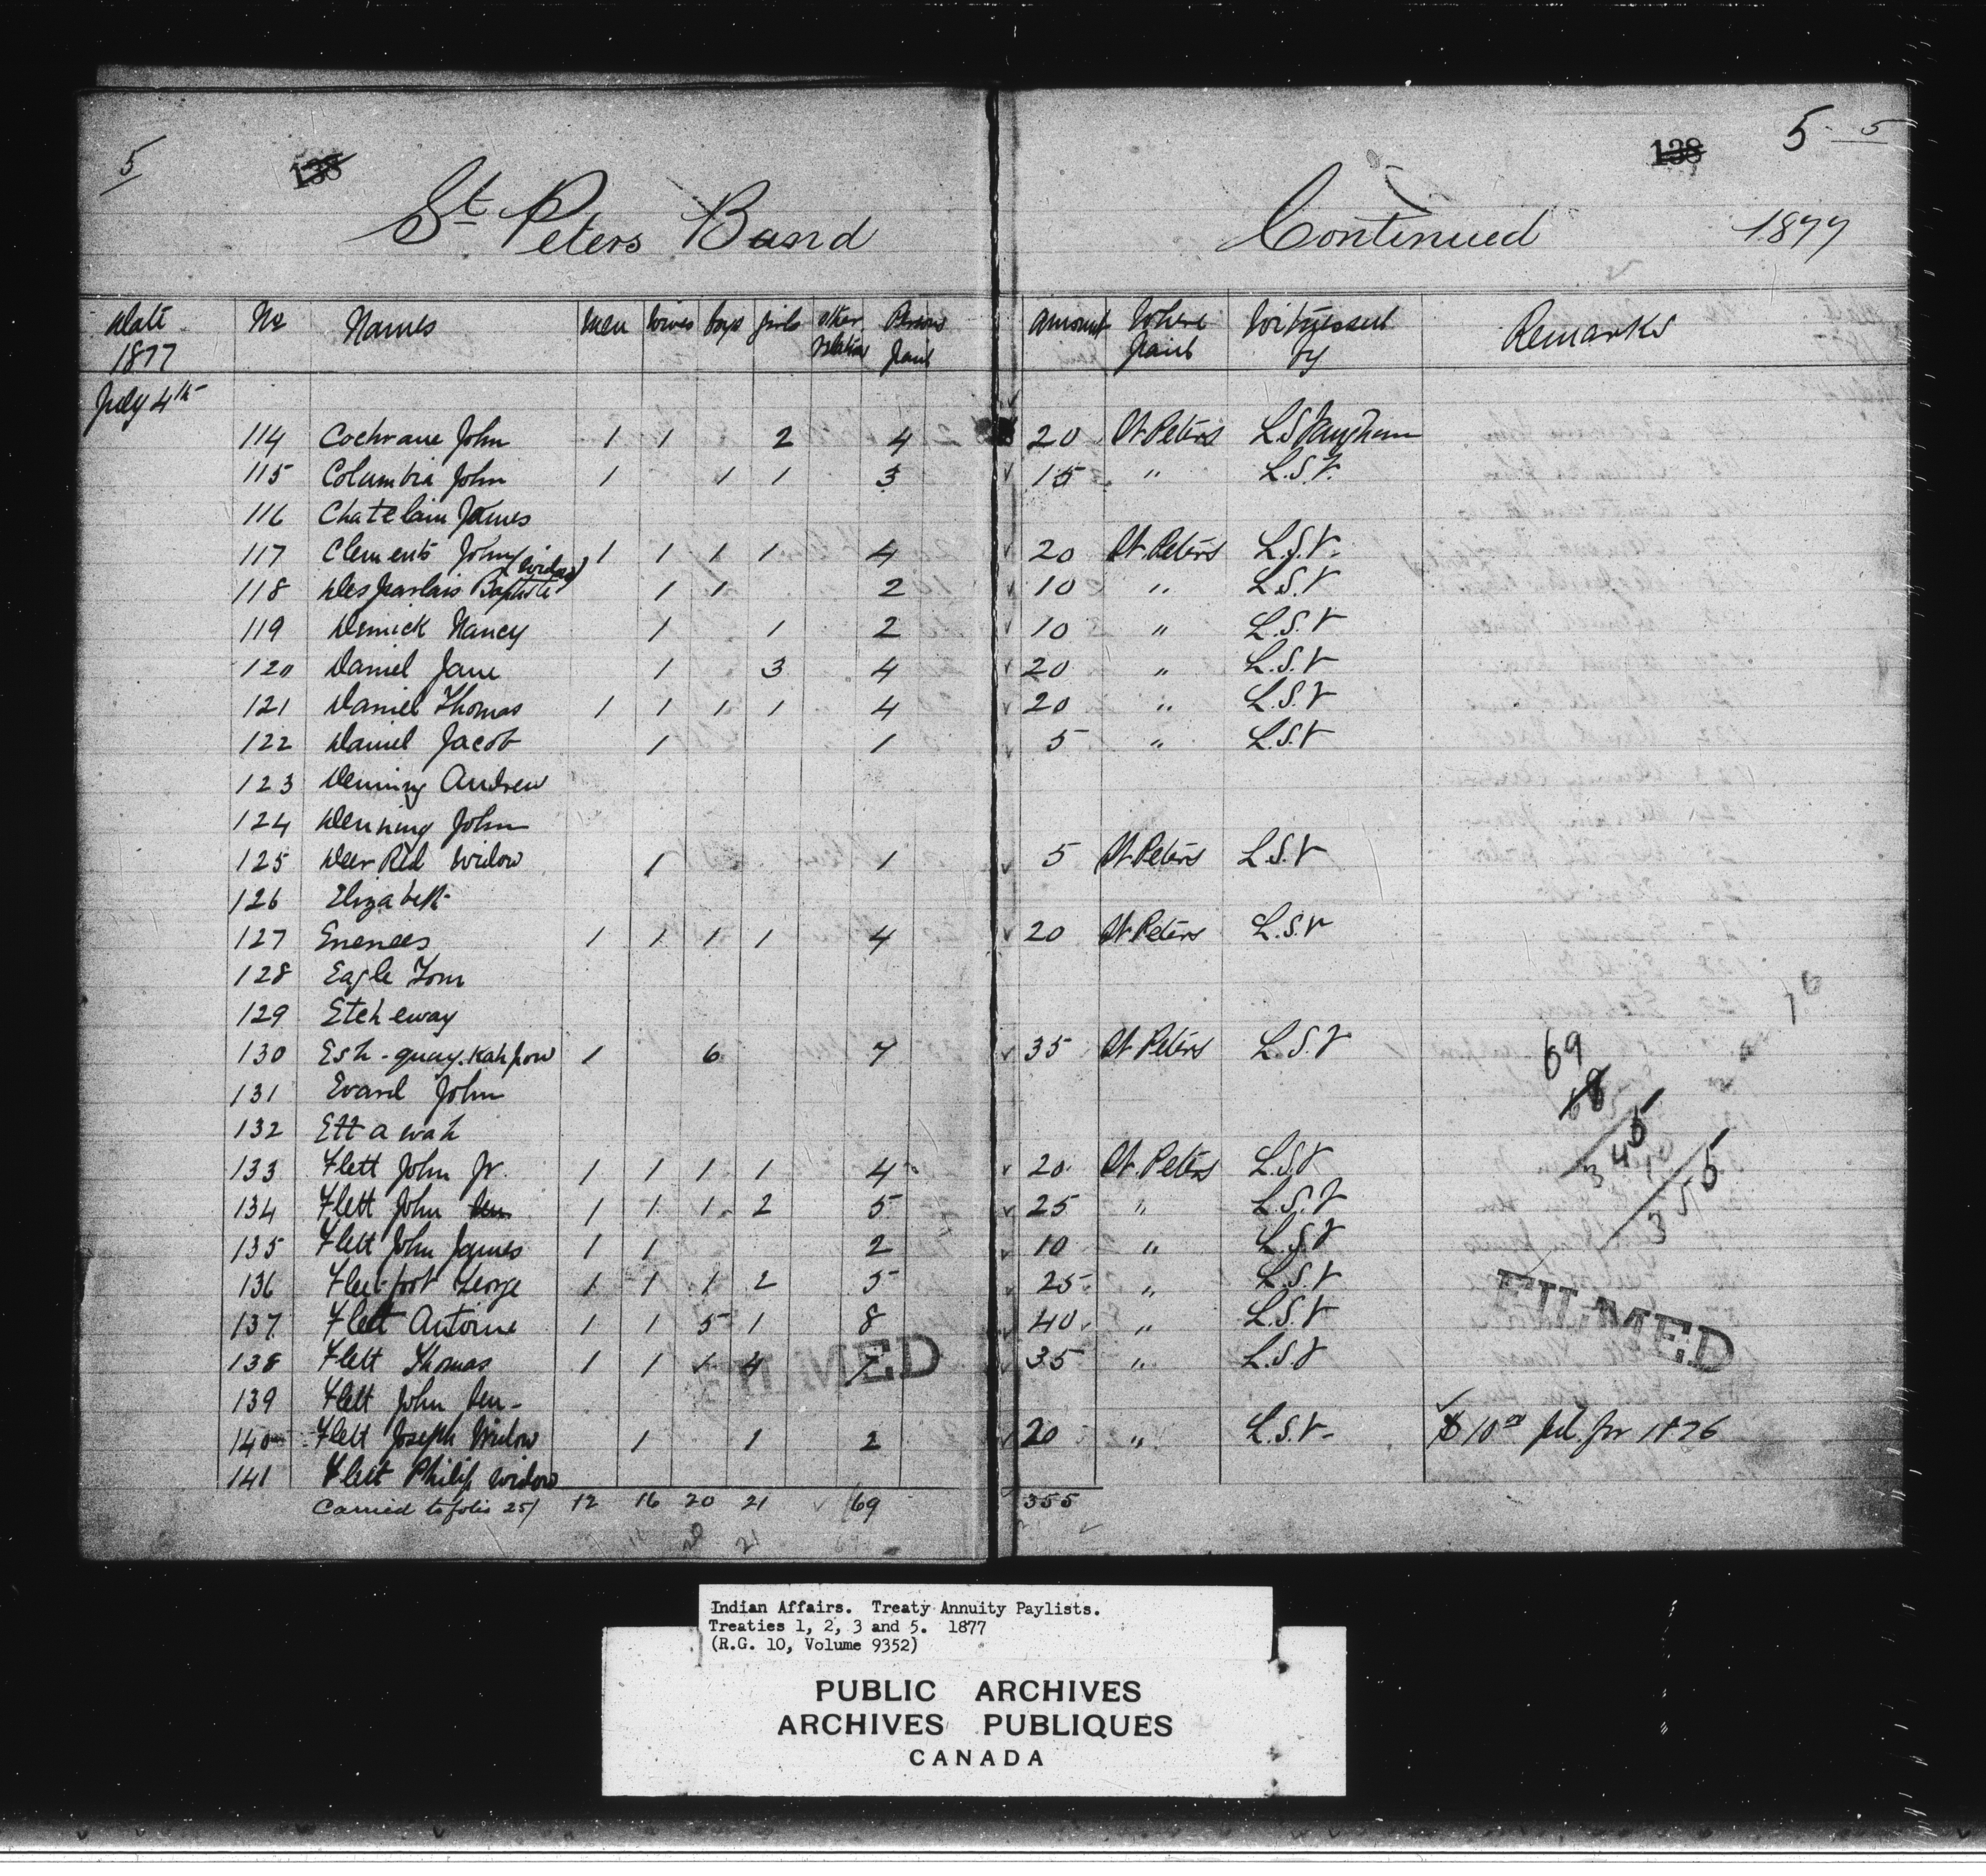 5 138 138 5 5
St Peters Band Continued 1877
Date 1877 No Names Men Wives boys girls other relatives Persons paid Amount paid Where paid Witnessed by Remarks
July 4th
114 Cochrane John 1 1 2 4 20 St Peters L S Vaughan
115 Columbia John 1 1 1 3 15 " L.S.V.
116 Chatelain James
117 Clements John 1 1 1 1 4 20 St. Peters L.S.V.
118 Desjarlais Baptiste (widow) 1 1 2 10 " L.S.V
119 Demick Nancy 1 1 2 10 " L.S.V
120 Daniel Jane 1 3 4 20 " L.S.V
121 Daniel Thomas 1 1 1 1 4 20 " L.S.V
122 Daniel Jacob 1 1 5 " L.S.V
123 Denning Andrew
124 Denning John
125 Deer Red Widow 1 1 5 St. Peters L.S.V
126 Elizabeth
127 Enenees 1 1 1 1 4 20 St Peters L.S.V
128 Eagle Tom
129 Etch eway
130 Esh-quay-kah pow 1 6 7 35 St Peters L.S.V
131 Evard John
132 Ett a wah
133 Flett John Jr. 1 1 1 1 4 20 St. Peters L.S.V
134 Flett John Sen 1 1 1 2 5 25 " L.S.V
135 Flett John James 1 1 2 10 " L.S.V
136 Fleetfoot George 1 1 1 2 5 25 " L.S.V
137 Flett Antoine 1 1 5 1 8 40 " L.S.V
138 Flett Thomas 1 1 1 4 7 35 " L.S.V
139 Flett John Sen-
140 Flett Joseph Widow 1 1 2 20 " L.S.V- $10 00 pd for 1876
141 Flett Philip Widow
Carried to folio 251 12 16 20 21 69 355
69
68
5
345
355
FILMED
FILMED
Indian Affairs. Treaty Annuity Paylists.
Treaties 1, 2, 3 and 5. 1877
(R.G. 10, Volume 9352)
PUBLIC ARCHIVES
ARCHIVES PUBLIQUES
CANADA